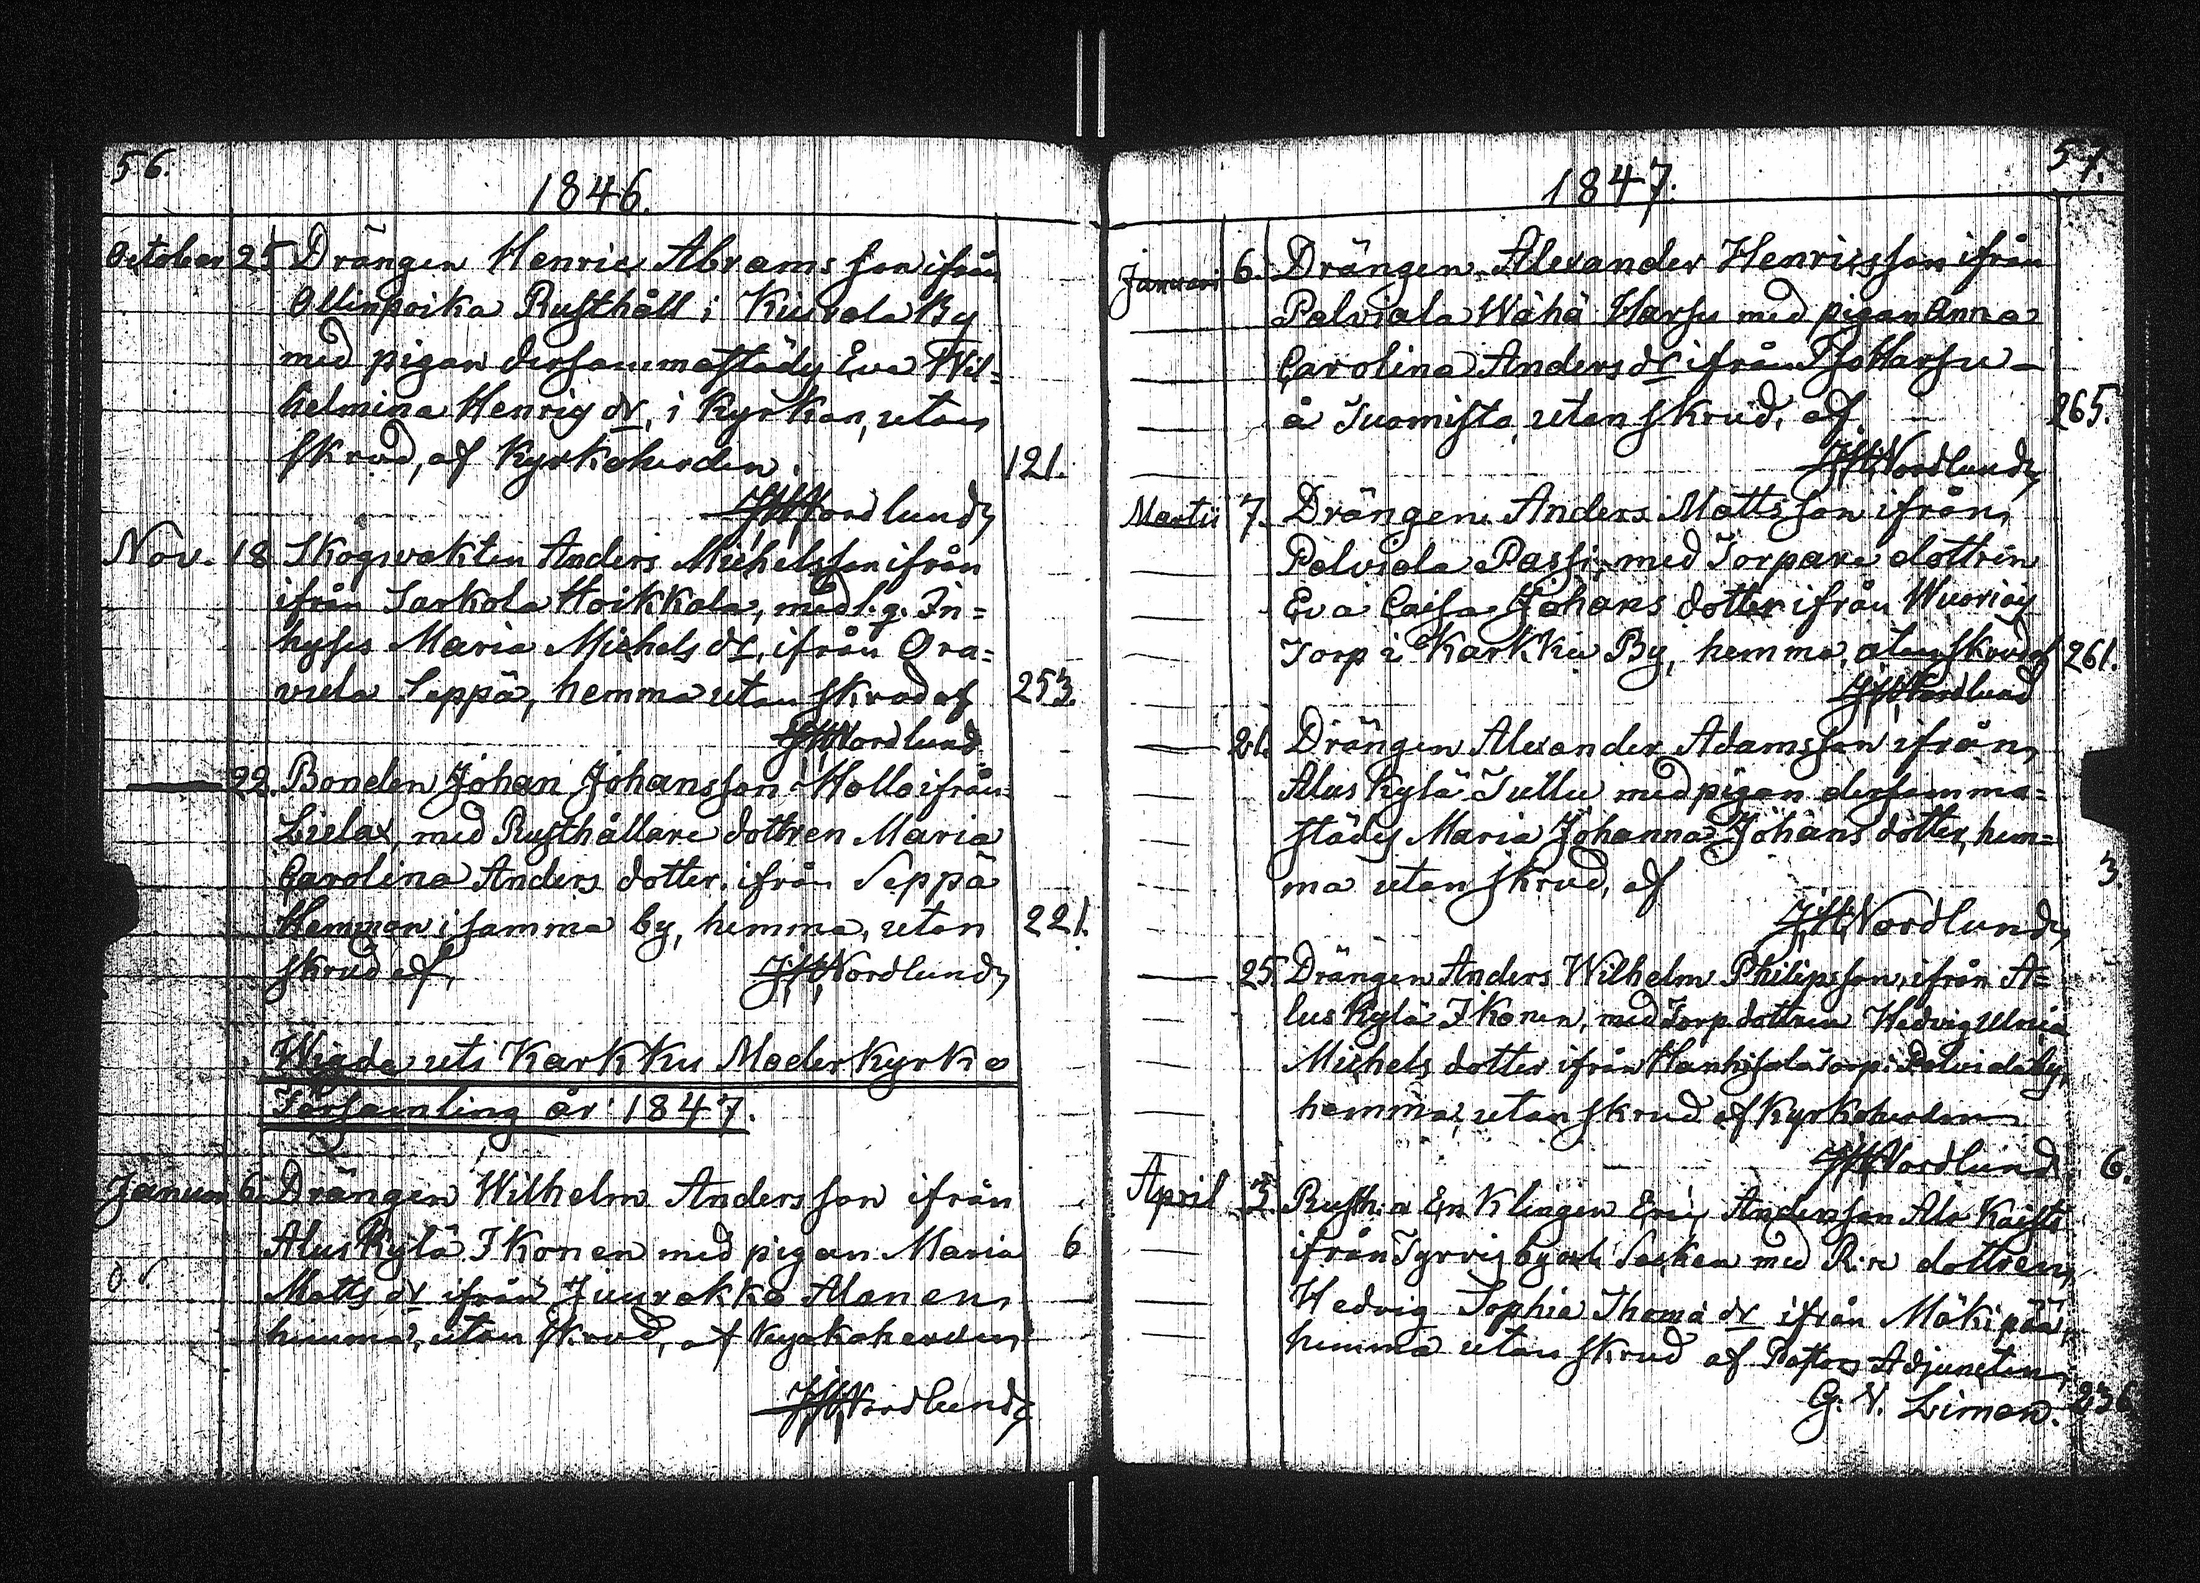 56.
1846.
October 25 Drängen Henric Abramsson ifrån
Ollinpoika Rusthåll i Kiurala By
med pigan dersammastädes Eva Wil=
helmina Henrics dr, i Kyrkan, utan
skrud, af Kyrkoherden. 121.
JHNordlund
Nov. 18 Skogvakten Anders Michelsson ifrån
ifrån Sarkola Hoikkala, med l. q. In=
hyses Maria Michels dr, ifrån Ora=
vuela Seppä, hemma utan skrud af 253.
JHNordlund
22. Bonden Johan Johansson Mollo ifrån
Lielax, med Rusthållare dottren Maria
Carolina Anders dotter ifrån Seppä
Hemman i samma by, hemma, utan 221.
skrud af, JHNordlund
Wigda uti Karkku Moderkyrko
Församling år 1847.
Januari 6. Drängen Wilhelm Andersson ifrån
Aluskylä Ikonen med pigan Maria 6
Matts dr ifrån Juurakko Alanen
hemma, utan skrud, af Kyrkoherden
JHNordlund
57.
1847.
Januari 6. Drängen Alexander Henricsson ifrån
Palviala Wähä Harsu med pigan Anna
Carolina Anders dr ifrån Iso Harsu
å Tuomisto utan skrud, af 265.
JHNordlund
Martii 7. Drängen Anders Mattsson ifrån
Palviala Passi, med Torpare dottren
Eva Caisa Johans dotter ifrån Wuorioj
Torp i Karkku By, hemma, utan skrud af 261.
JHNordlund
21. Drängen Alexander Adamsson ifrån
Aluskylä Tullu med pigan dersamma=
städes Maria Johanna Johans dotter, hem=
ma utan skrud, af 3.
JHNordlund
25. Drängen Anders Wilhelm Philipsson, ifrån A=
luskylä Ikonen, med Torp. dottren Hedvig Ulrica
Michels dotter ifrån Hanhisalo Torp i Palviala by,
hemma, utan skrud af Kyrkoherden
JHNordlund 6.
April 5. Rusth. Enklingen Eric Andersson Ala Kaisti
ifrån Tyrvis by och Socken med R:re dottren
Hedvig Sophia Thomas dr ifrån Mäkipää,
hemma utan skrud af Pastors Adjuncten
G. N. Liman. 236